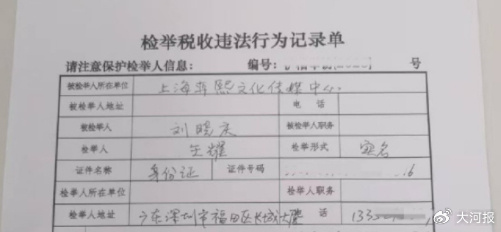 检举税收违法行为记录单
请注意保护检举人信息: 编号:
被检举人所在单位 上海 熙文化传媒中心
被检举人地址 电 话
被检举人 刘晓庆 被检举人职务
检举人 王耀 检举形式 实名
证件名称 身份证 证件号码 6
检举人所在单位 检举人职务
检举人地址 广东深圳市福田区长城大厦 话 133
@大河报